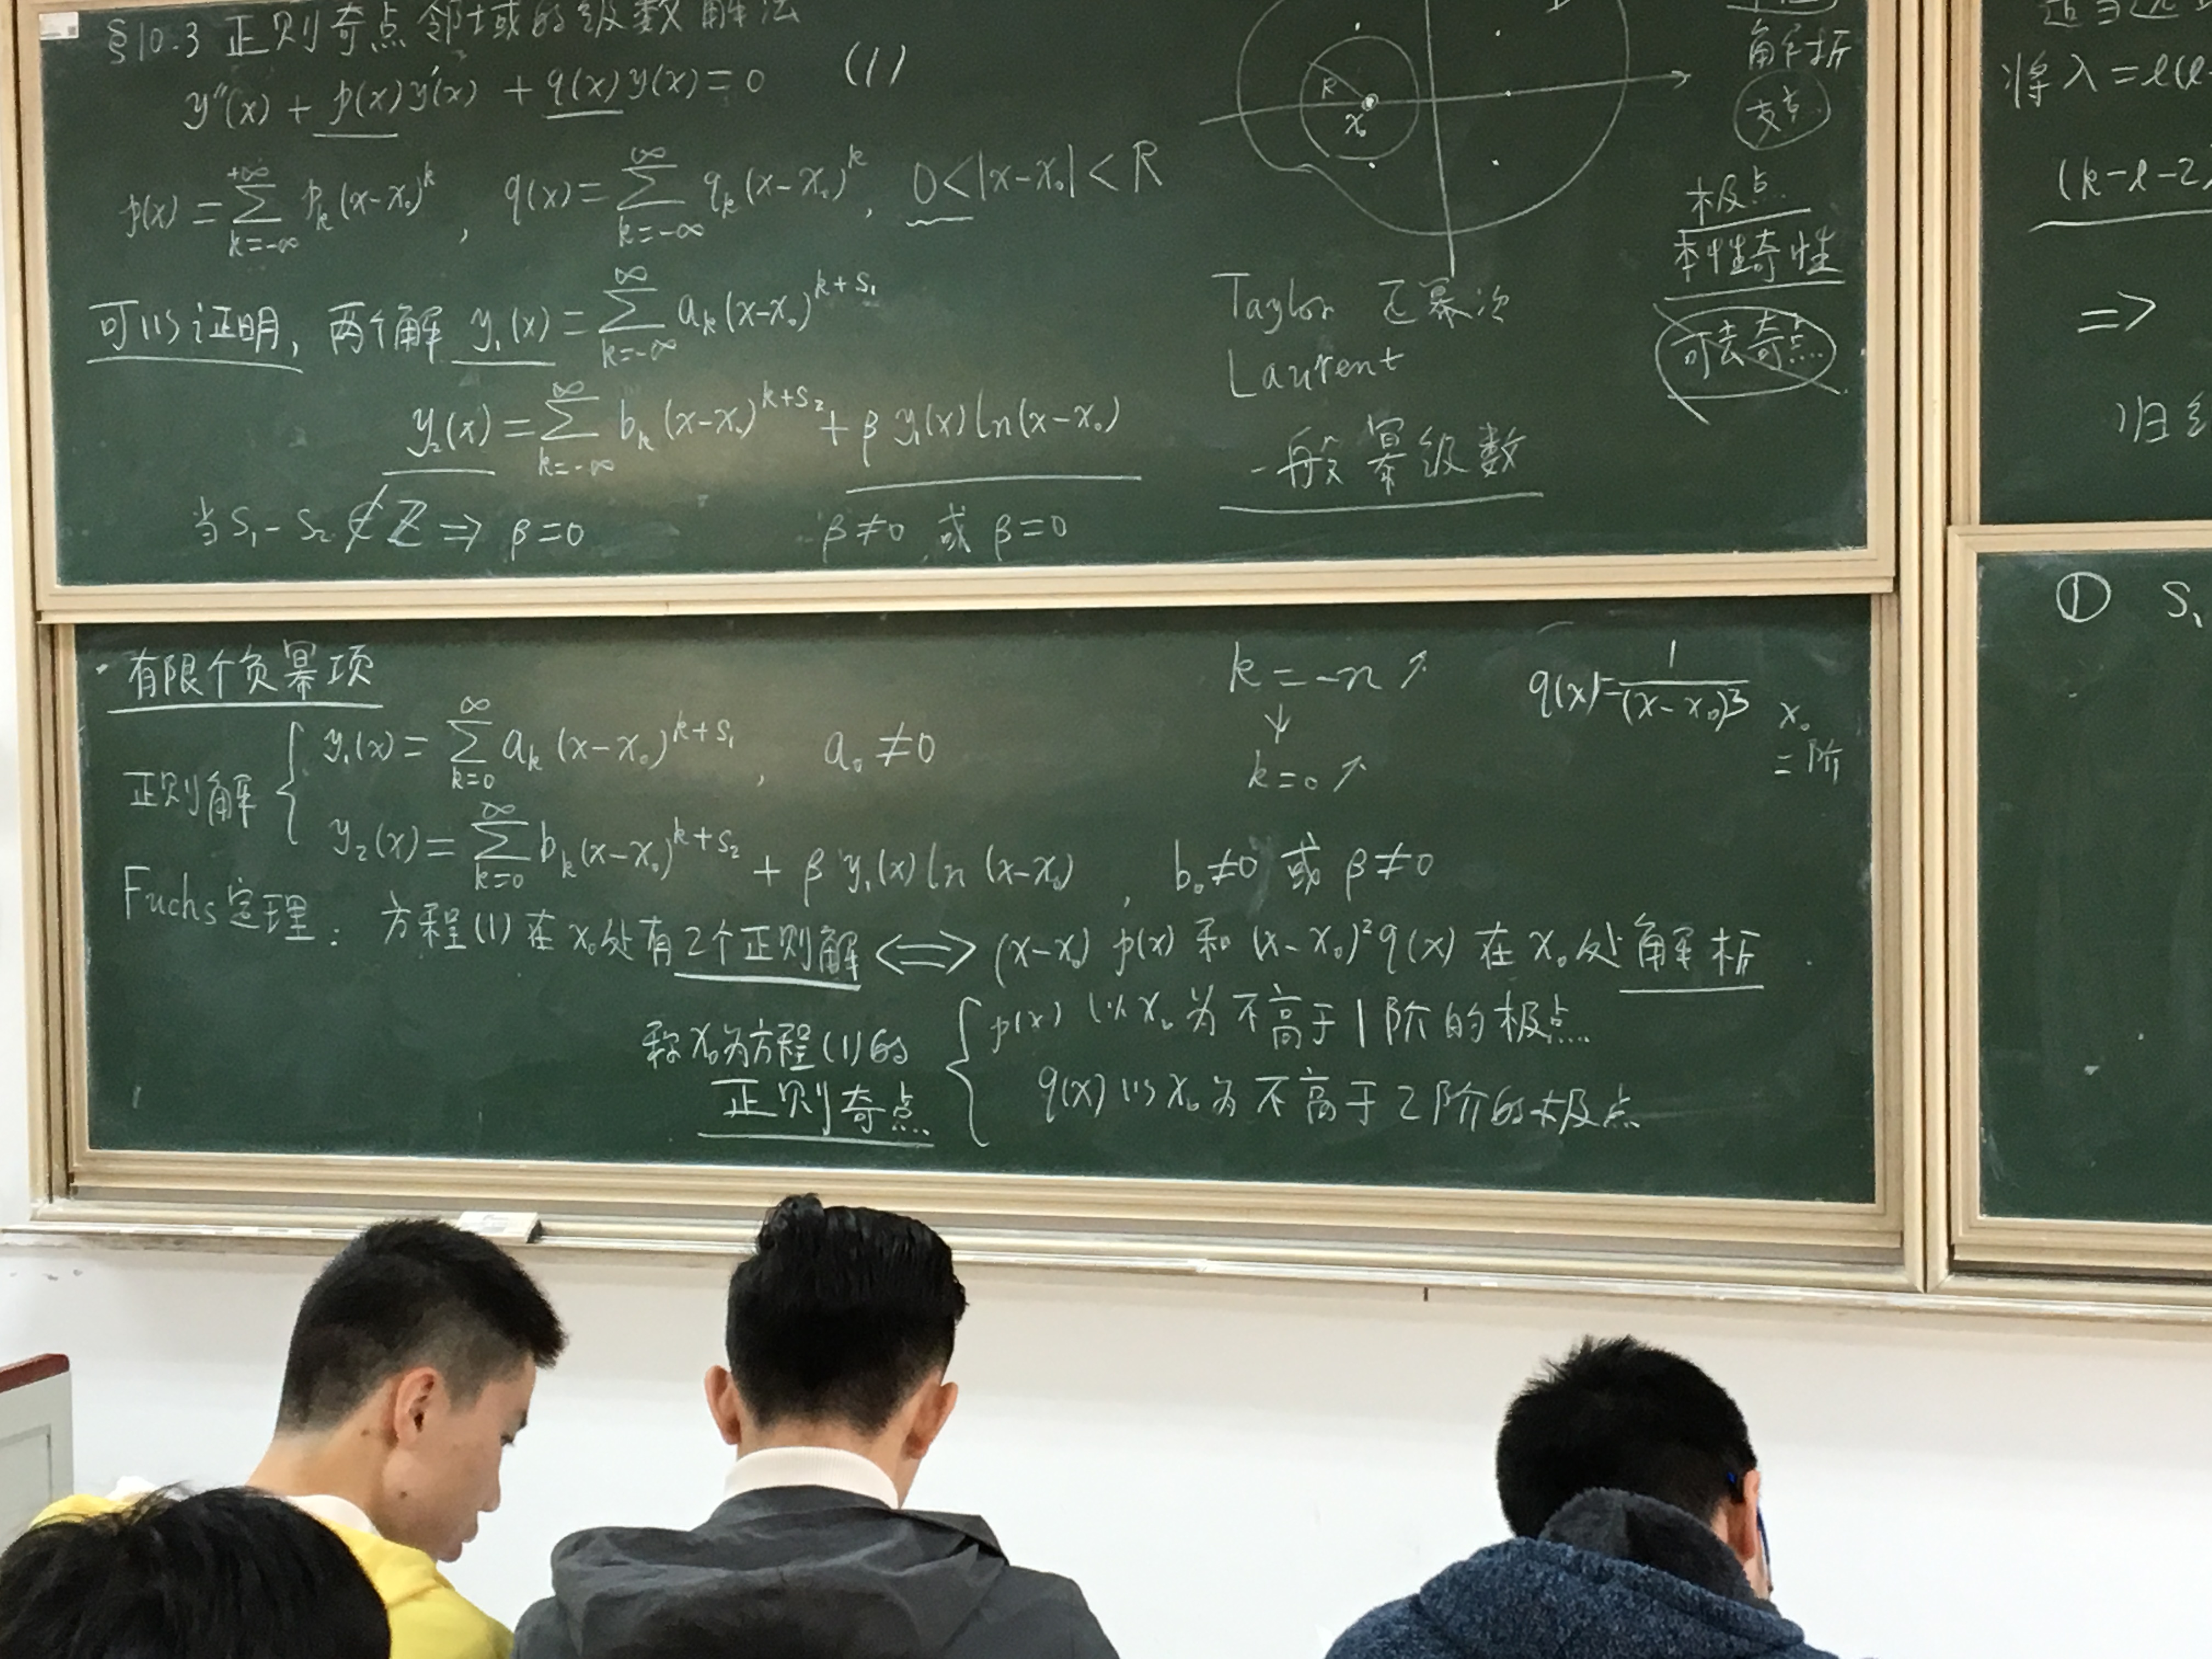 §10.3 正则奇点邻域的级数解法
y''(x) + p(x)y'(x) + q(x)y(x) = 0 (1)
p(x) = \sum_{k=-∞}^{+∞} p_k (x-x_0)^k , q(x) = \sum_{k=-∞}^{∞} q_k (x-x_0)^k , 0<|x-x_0|<R
可以证明, 两个解 y_1(x) = \sum_{k=-∞}^{∞} a_k (x-x_0)^{k+s_1}
y_2(x) = \sum_{k=-∞}^{∞} b_k (x-x_0)^{k+s_2} + β y_1(x) ln(x-x_0)
当 s_1 - s_2 ∉ Z ⇒ β=0 β≠0 或 β=0
R
x_0
Taylor 正幂次
Laurent
一般幂级数
解析
支点
极点
本性奇性
可去奇点
将λ=l(l
(k-l-2)
⇒
归
有限个负幂项
正则解 { y_1(x) = \sum_{k=0}^{∞} a_k (x-x_0)^{k+s_1} , a_0 ≠ 0
y_2(x) = \sum_{k=0}^{∞} b_k (x-x_0)^{k+s_2} + β y_1(x) ln (x-x_0) , b_0≠0 或 β≠0
k = -n ↗
↓
k = 0 ↗
q(x) = \frac{1}{(x-x_0)^3} x_0
二阶
Fuchs定理: 方程(1) 在 x_0 处有2个正则解 ⟺ (x-x_0) p(x) 和 (x-x_0)^2 q(x) 在 x_0 处解析.
称x_0为方程(1)的正则奇点 { p(x) 以 x_0 为不高于1阶的极点
q(x) 以 x_0 为不高于2阶的极点
① S_1